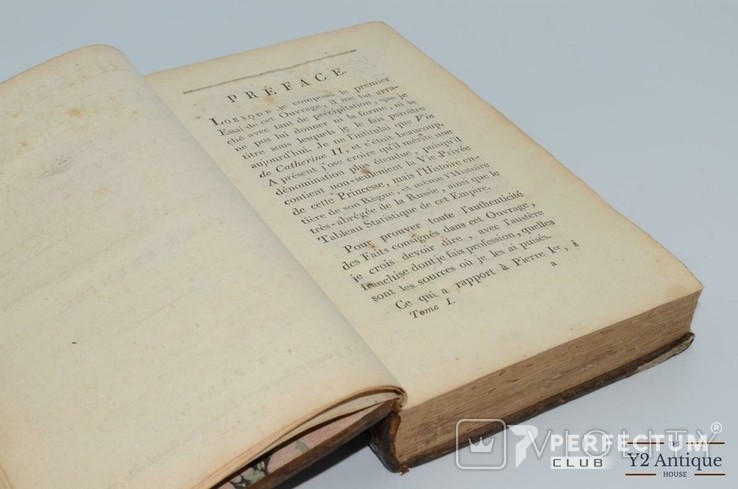 PRÉFACE
LORSQUE je composai le premier
Essai de cet Ouvrage, il me fut arra-
ché avec tant de précipitation, que je
ne pus lui donner ni la forme, ni le
titre sous lesquels je le fais paroître
aujourd'hui. Je ne l'intitulai que Vie
de Catherine II, et c'étoit beaucoup.
A présent j'ose croire qu'il mérite une
dénomination plus étendue, puisqu'il
contient non-seulement la Vie Privée
de cette Princesse, mais l'Histoire en-
tière de son Règne, et même l'Histoire
très-abrégée de la Russie, ainsi que le
Tableau Statistique de cet Empire.
Pour prouver toute l'authenticité
des Faits consignés dans cet Ouvrage,
je crois devoir dire, avec l'austère
franchise dont je fais profession, quelles
sont les sources où je les ai puisés.
Ce qui a rapport à Pierre Ier, à
Tome I. a
VIOLITY
7 PERFECTUM®
CLUB
Y2 Antique
HOUSE